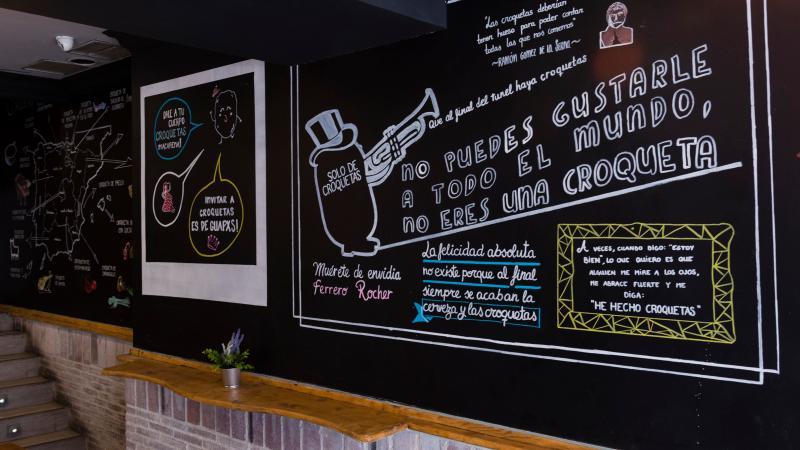 DALE A TU
CUERPO
CROQUETAS
MACARENA!
INVITAR A
CROQUETAS
ES DE GUAPXS!
"Las croquetas deberían
tener hueso para poder contar
todas las que nos comemos"
~RAMÓN GOMEZ DE LA SERNA~
que al final del tunel haya croquetas
SOLO DE
CROQUETAS
NO PUEDES GUSTARLE
A TODO EL MUNDO,
NO ERES UNA CROQUETA
Muérete de envidia
Ferrero Rocher
La felicidad absoluta
no existe porque al final
siempre se acaban la
cerveza y las croquetas
A VECES, CUANDO DIGO: "ESTOY
BIEN", LO QUE QUIERO ES QUE
ALGUIEN ME MIRE A LOS OJOS,
ME ABRACE FUERTE Y ME
DIGA:
"HE HECHO CROQUETAS"